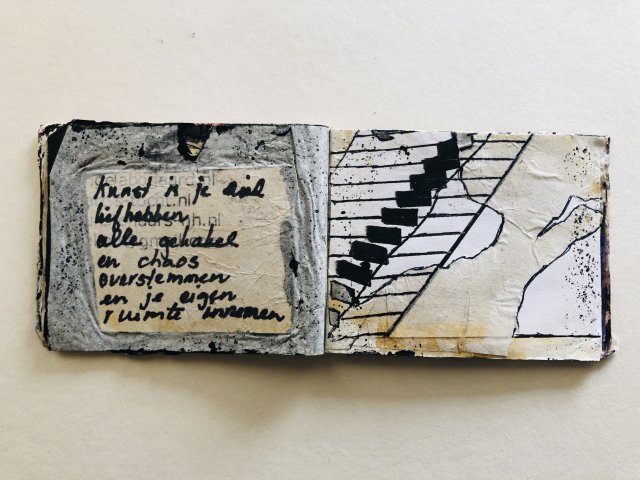 Kunst is je ziel
liefhebben
alle gekakel
en chaos
overstemmen
en je eigen
ruimte innemen